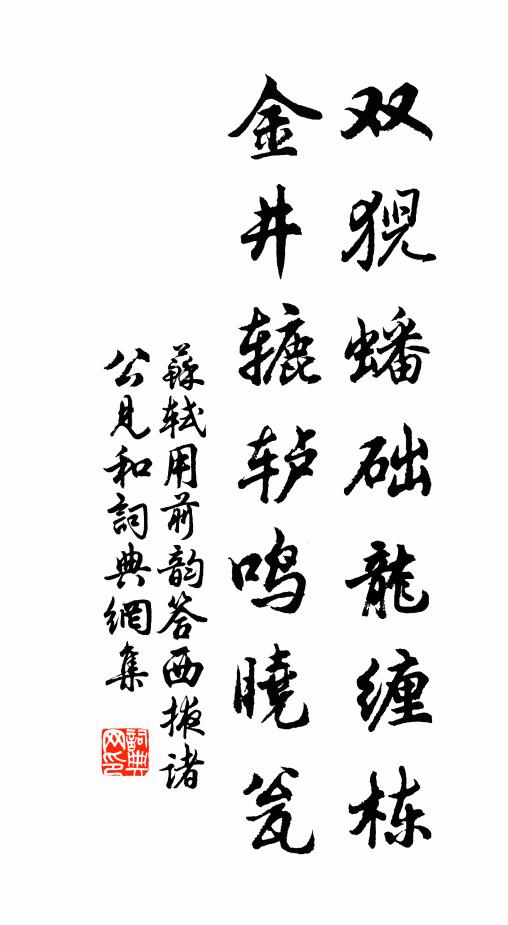 双猊蟠础龍缠栋
金井辘轳鸣曉瓮
蘇轼用前韵答西掖诸
公見和詞典網集
詞典
网印